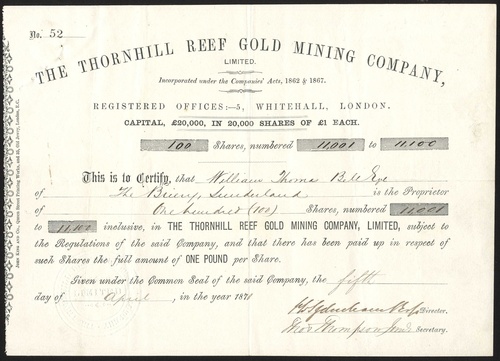 No. 52
THE THORNHILL REEF GOLD MINING COMPANY,
LIMITED.
Incorporated under the Companies' Acts, 1862 & 1867.
REGISTERED OFFICES:—5, WHITEHALL, LONDON.
CAPITAL, £20,000, IN 20,000 SHARES OF £1 EACH.
100 Shares, numbered 11,001 to 11,100
This is to Certify, that William Thomas Bell Esq
of The Briery, Sunderland is the Proprietor
of One hundred (100) Shares, numbered 11,001
to 11,100 inclusive, in THE THORNHILL REEF GOLD MINING COMPANY, LIMITED, subject to
the Regulations of the said Company, and that there has been paid up in respect of
such Shares the full amount of ONE POUND per Share.
Given under the Common Seal of the said Company, the fifth
day of April, in the year 1871
Director.
Thos Thompson Secretary.